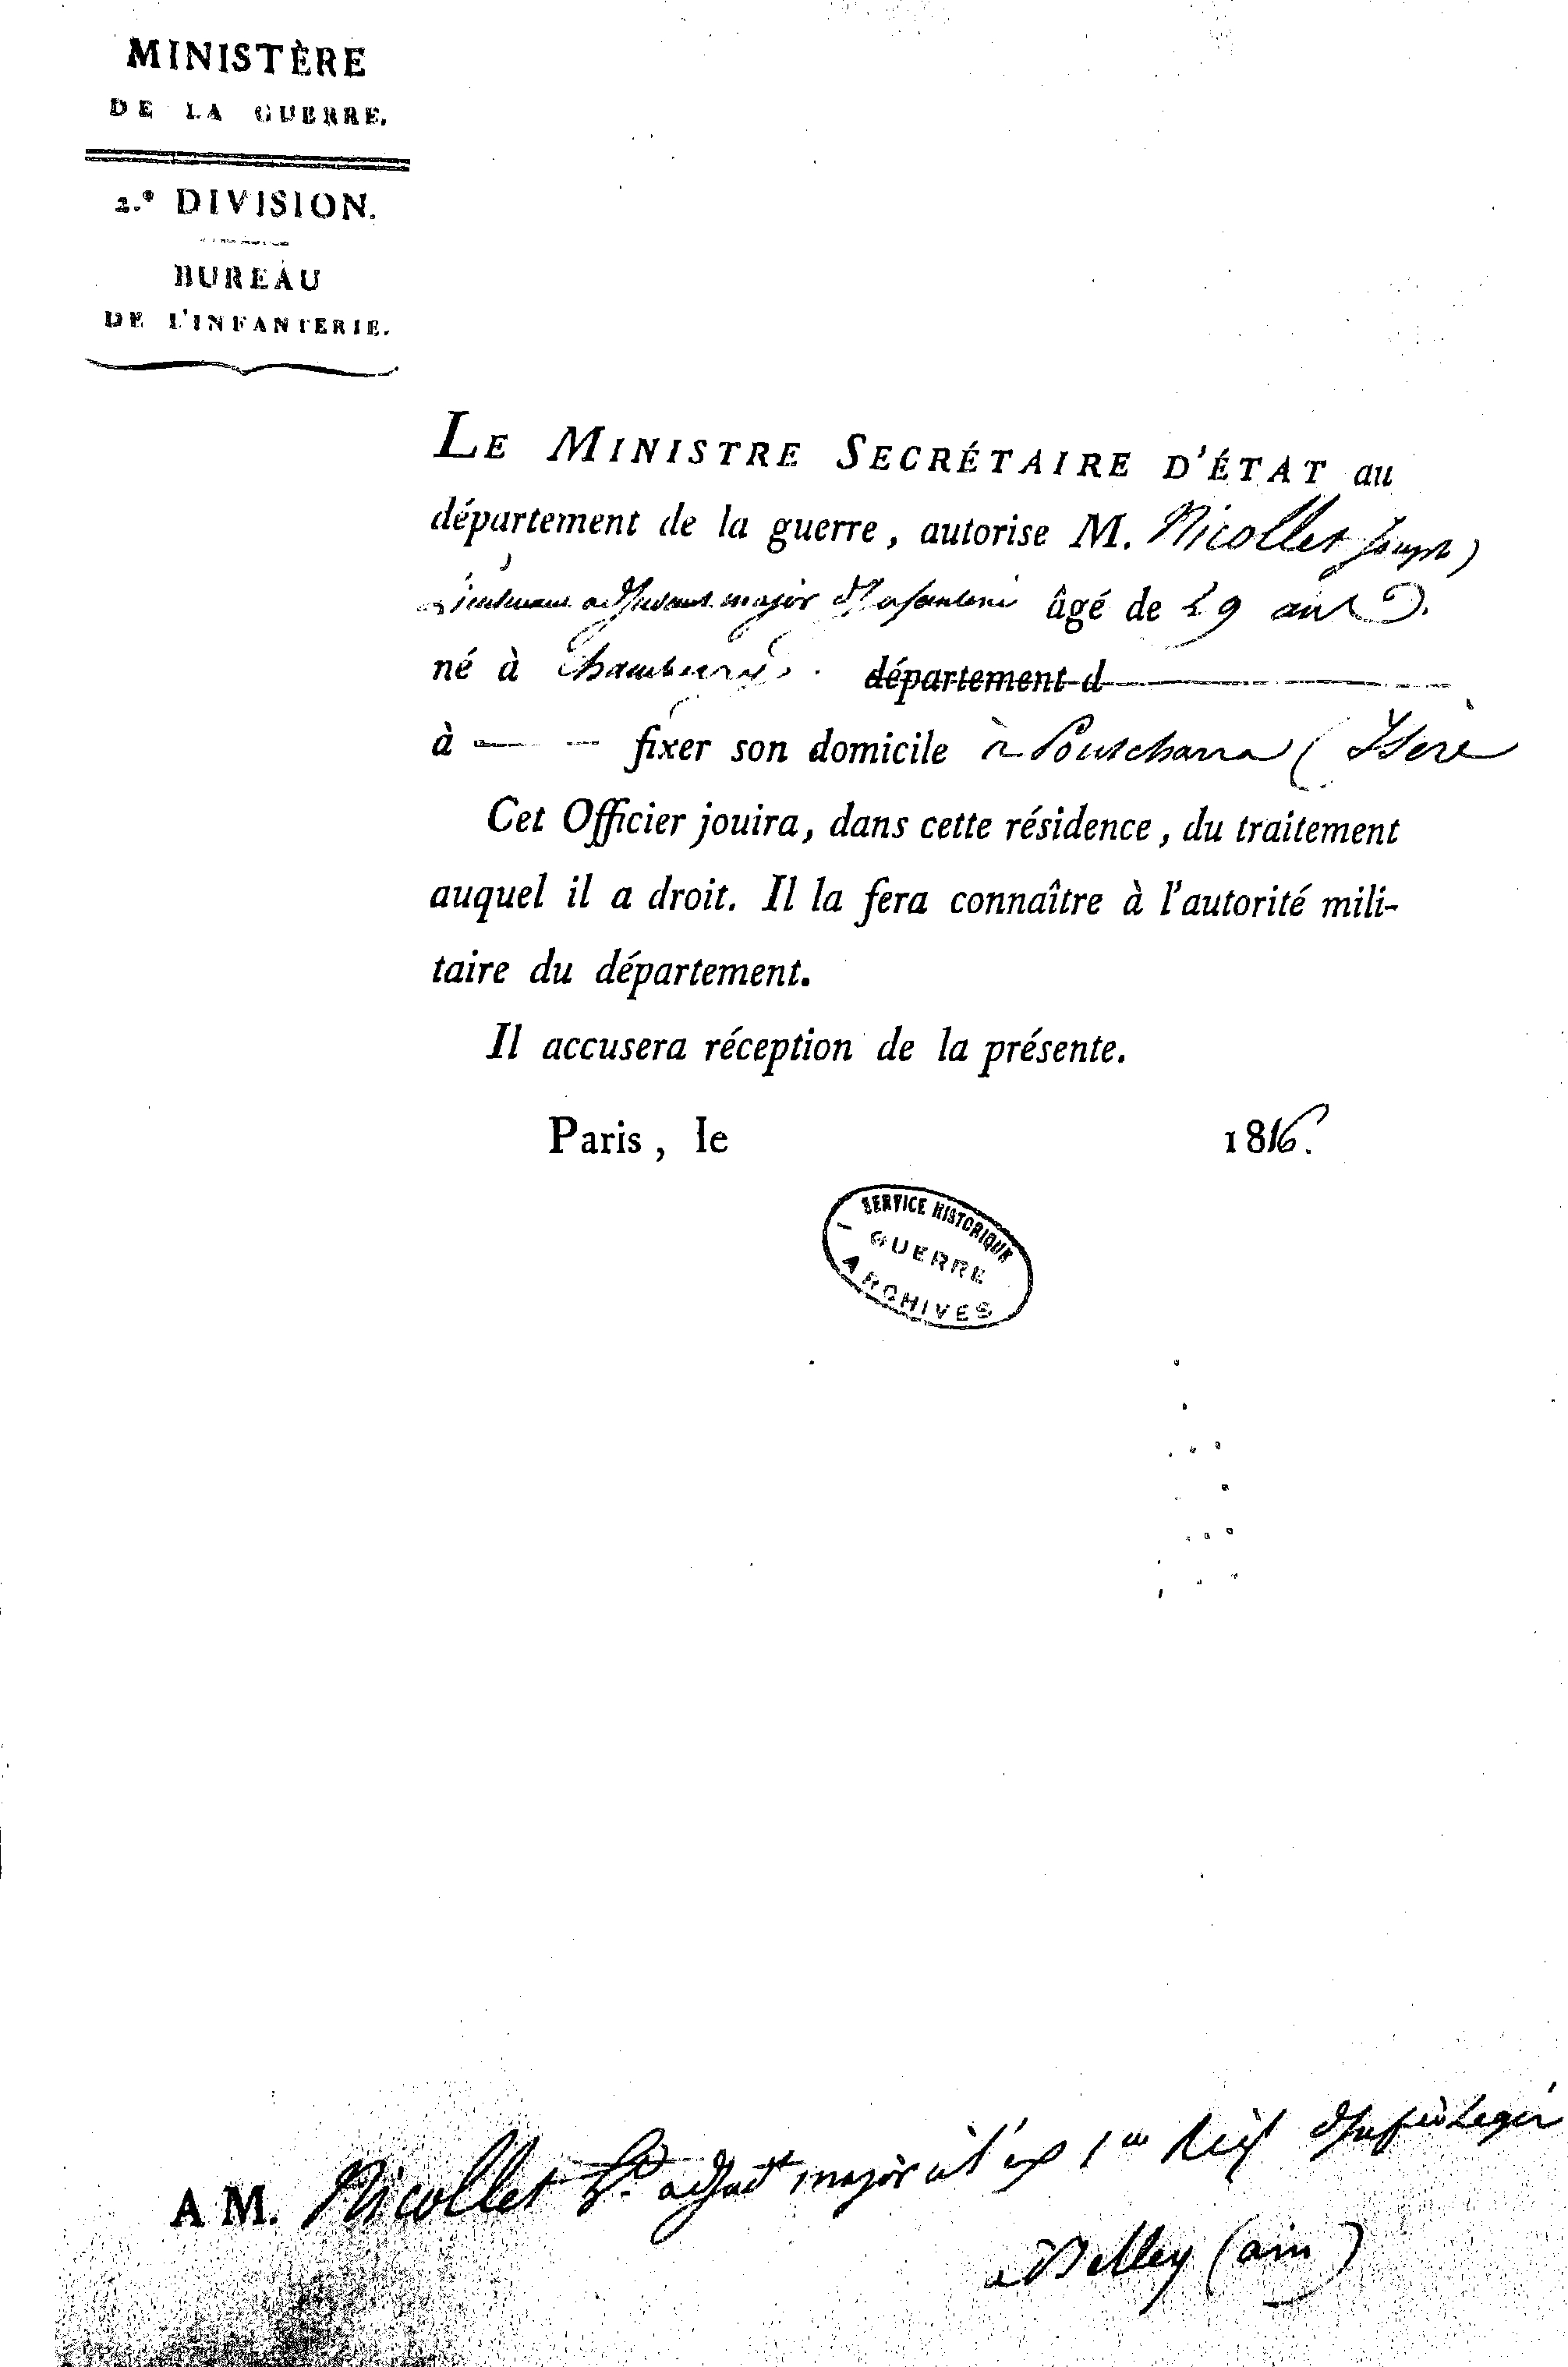 MINISTÈRE
DE LA GUERRE.
2.e DIVISION.
BUREAU
DE L'INFANTERIE.
LE MINISTRE SECRÉTAIRE D'ÉTAT au
département de la guerre, autorise M. Nicollet Joseph)
Lieutenant adjudant major d'Infanterie âgé de 29 ans
né à Chambery. département d
à — — fixer son domicile à Pontcharra (Isere
Cet Officier jouira, dans cette résidence, du traitement
auquel il a droit. Il la fera connaître à l'autorité mili-
taire du département.
Il accusera réception de la présente.
Paris, le 1816.
SERVICE HISTORIQUE
GUERRE
ARCHIVES
A M. Nicollet Lt. adjudt major à l'ex 1er Regt d'Infrie Legere
a Belley (ain)